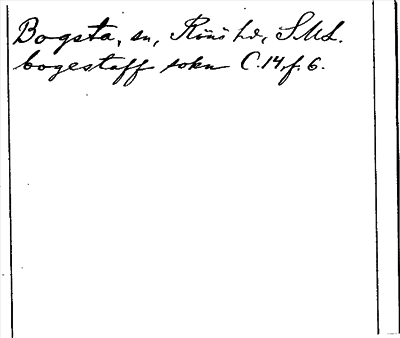 Bogsta, sn, Rönö hd, SML.
bogestaff sokn C.14, f. 6.